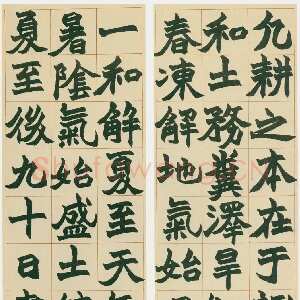 凡耕之本在于
和土務糞澤旱
春凍解地氣始
一和解夏至天
暑陰氣始盛土
夏至後九十日